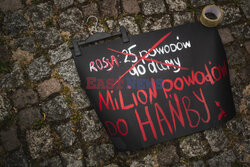 ROSJA: 25 POWODÓW
do dumy
MILION POWODÓW
DO HAŃBY